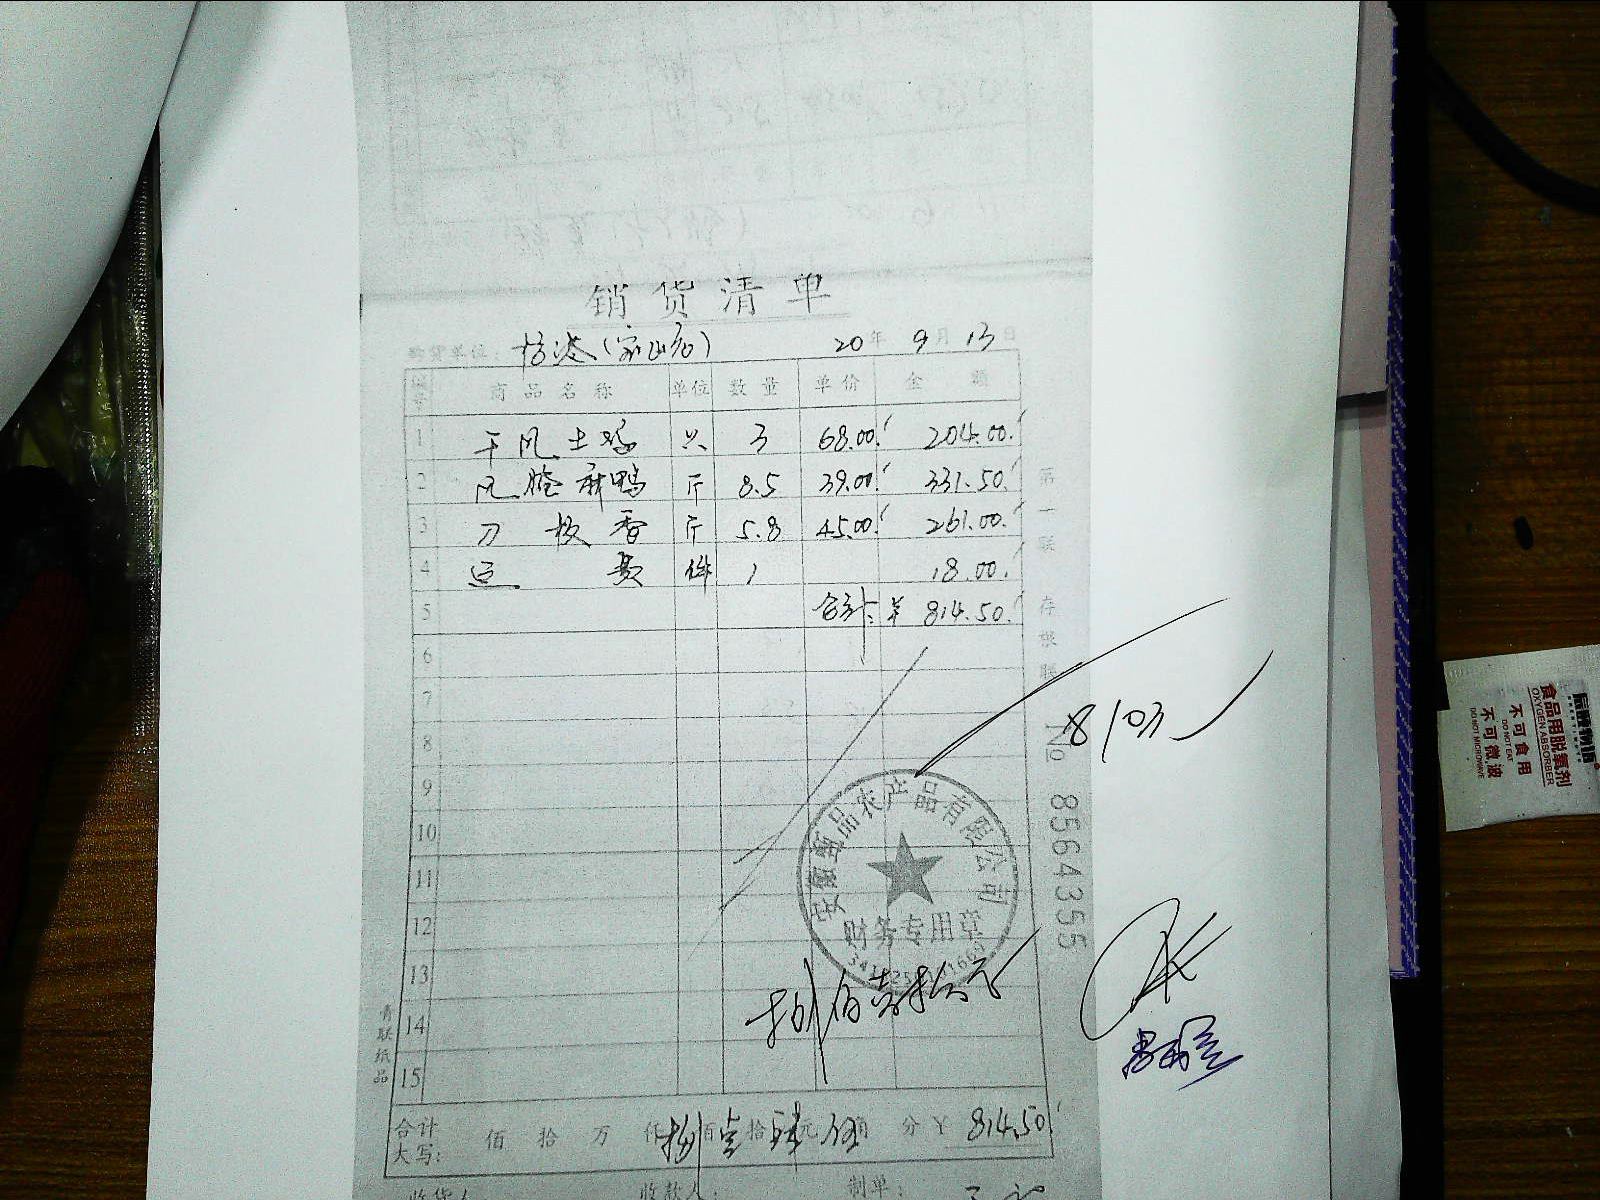 销货清单
购货单位: 杨波(家山店) 20年 9月 13日
编号 商品名称 单位 数量 单价 金额
1 干风土鸡 只 3 68.00 204.00
2 风腌麻鸭 斤 8.5 39.00 331.50
3 刀板香 斤 5.8 45.00 261.00
4 运费 件 1 18.00
5 合计: ¥ 814.50
6
7
8
9
10
11
12
13
14
15
第一联 存根联
No 8564355
8/03
农产品有限公司
财务专用章
捌佰壹拾
青联纸品
合计大写: 佰 拾 万 仟 捌佰 壹拾 肆元 伍角 分 ¥ 814.50
收货人 收款人: 制单:
食品用脱氧剂
OXYGEN ABSORBER
不可食用
DO NOT EAT
不可微波
DO NOT MICROWAVE